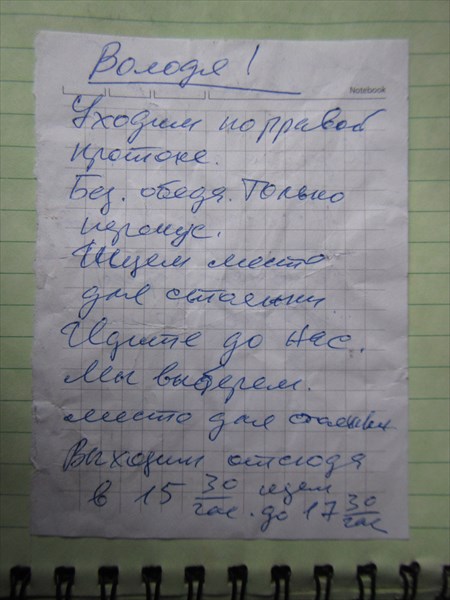 Володя!
Notebook
Уходим по правой
протоке.
Без. обеда. Только
перекус.
Ищем место
для стоянки
Идите до нас.
Мы выберем.
место для стоянки
Выходим отсюда
в 15 30/час идем
до 17 30/час